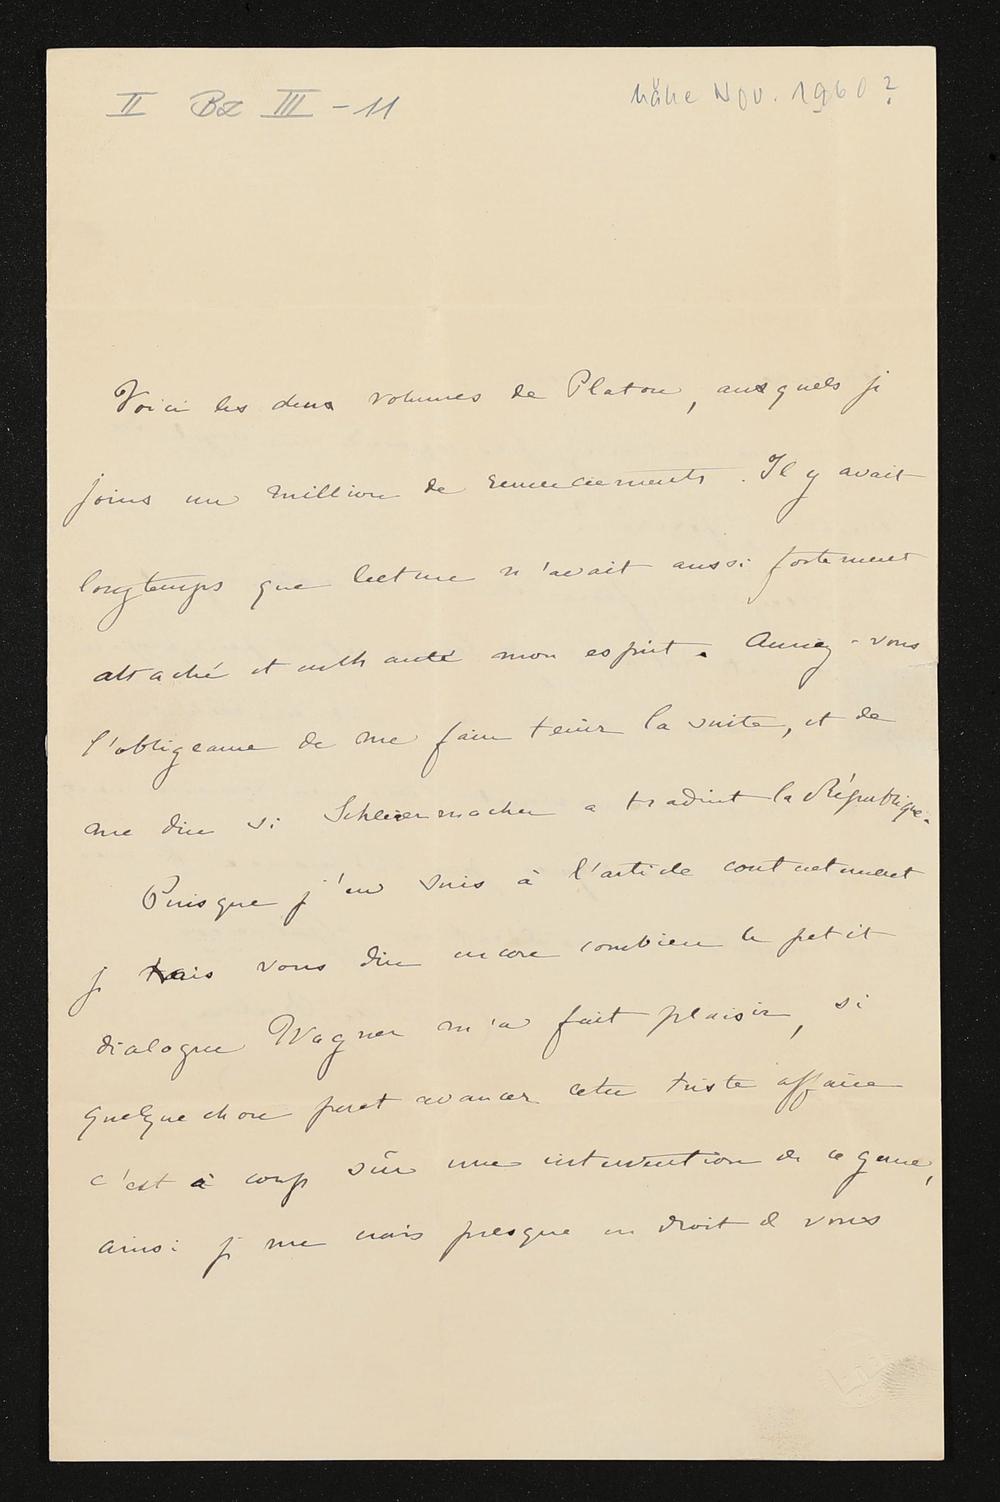 II Bz III - 11
Nähe Nov. 1960?
Voici les deux volumes de Platon, auxquels je
joins un million de remerciements. Il y avait
longtemps que lecture n'avait aussi fortement
attaché et enchanté mon esprit. Auriez-vous
l'obligeance de me faire tenir la suite, et de
me dire si Schleiermacher a traduit la République.
Puisque j'en suis à l'article contentement
je vais vous dire encore combien le petit
dialogue Wagner m'a fait plaisir, si
quelque chose peut avancer cette triste affaire
c'est à coup sûr une intervention de ce genre,
ainsi je me crois presque en droit de vous